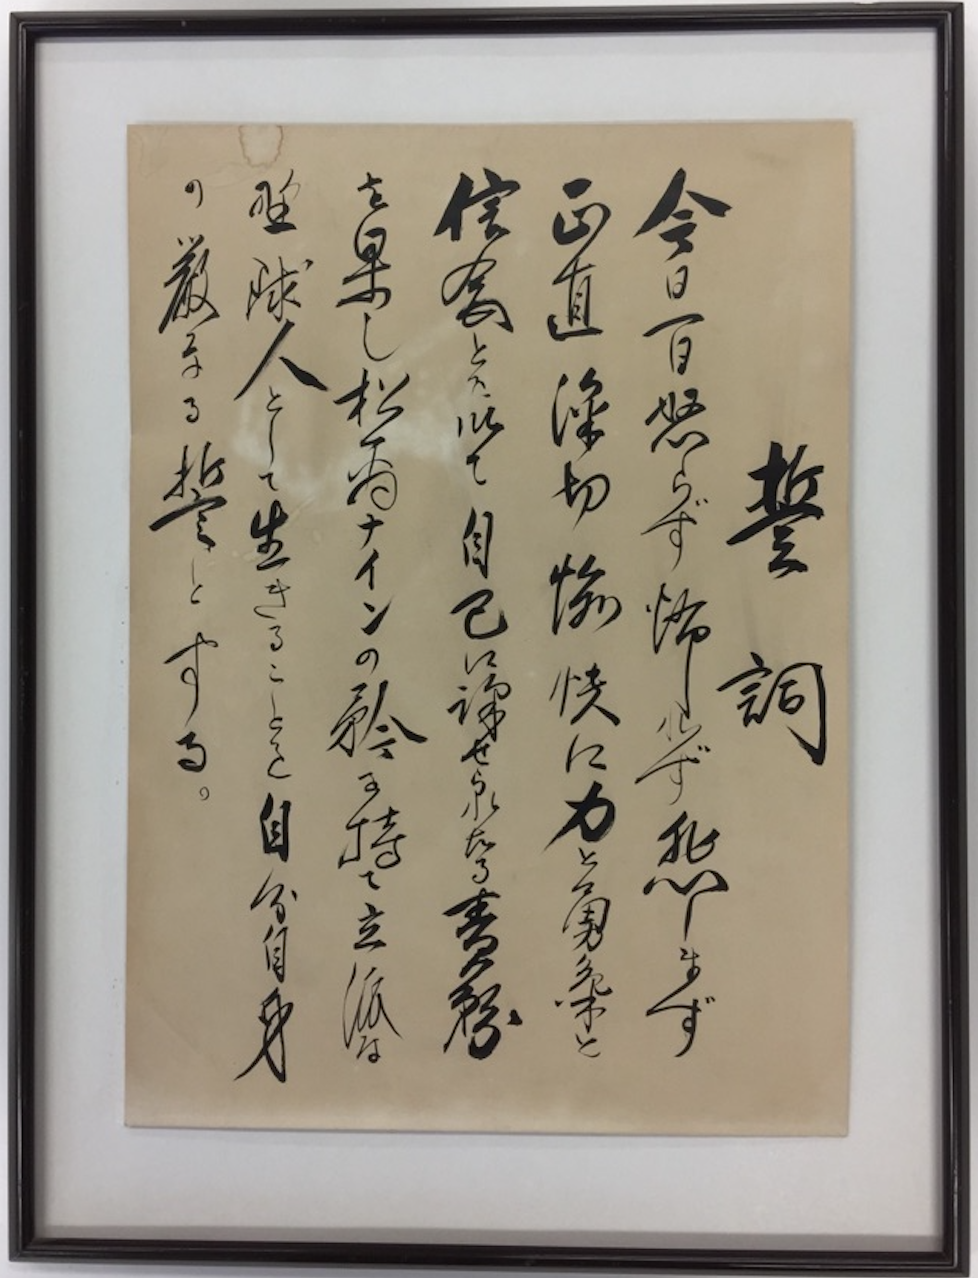 誓詞
今日一日怒らず怖れず悲しまず
正直深切愉快に力と勇気と
信念とを以て自己に課せられたる責務
を果し松商ナインの矜を持て立派な
野球人として生きることを自分自身
の厳なる誓とする。